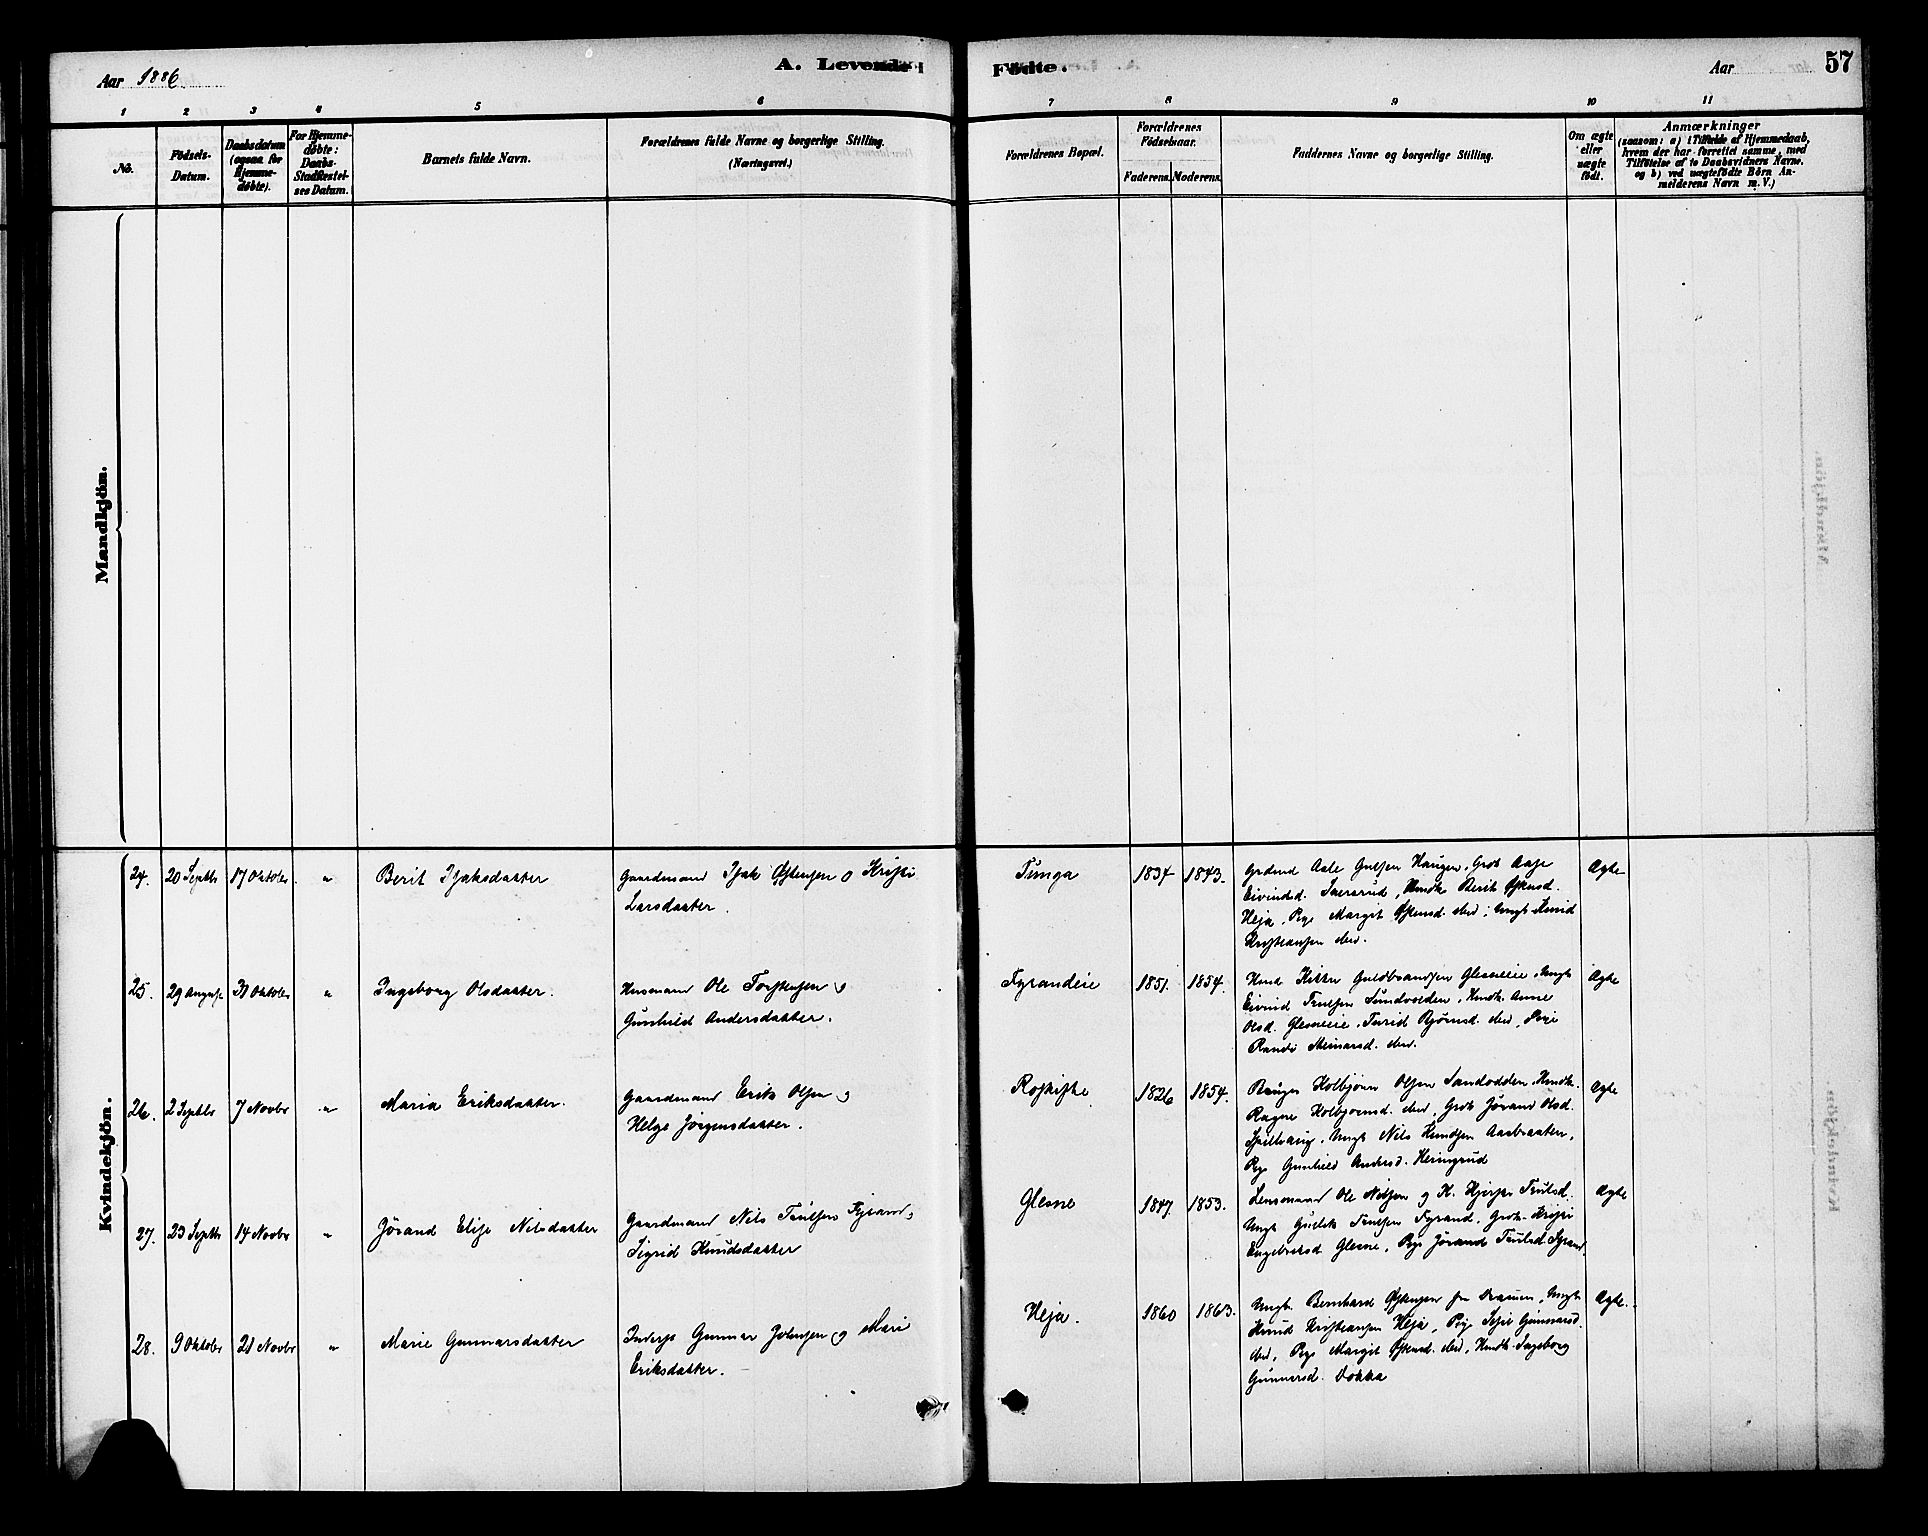 Aar 1886.
A. Levende
Fødte.
Aar
57
1 2 3 4 5 6 7 8 9 10 11
No.
Födsels-
Datum.
Daabsdatum
(ogsaa for
Hjemme-
döbte).
For Hjemme-
döbte:
Daabs-
Stadfæstel-
ses Datum.
Barnets fulde Navn.
Forældrenes fulde Navne og borgerlige Stilling.
(Næringsvei.)
Forældrenes Bopæl.
Forældrenes
Födselsaar.
Faderens. Moderens.
Faddernes Navne og borgerlige Stilling.
Om ægte
eller
uægte
födt.
Anmærkninger
(saasom: a) i Tilfælde af Hjemmedaab,
hvem der har forrettet samme, med
Tilföielse af to Daabsvidners Navne,
og b) ved uægtefödte Börn An-
melderens Navn m. V.)
Mandkjön.
Kvindekjön.
24. 20 Septbr 17 Oktober " Berit Isaksdatter
Gaardmand Isak Østensen o Kristi
Larsdatter.
Tunga 1834 1843.
Grdmd Asle Gulsen Haugen, Grdk Aase
Eivindsd. Berit Østensd.
Heja, Pige Margit Østensd. ibid; Ungk Knud
Kristiansen ibid.
Ægte
25. 29 August 31 Oktober " Ingeborg Olsdatter.
Husmand Ole Torstensen o
Gunhild Andersdatter.
Fyrandeie 1851. 1854.
Husmd Guldbrandsen Glesneeie, Ungk
Eivind Trulsen Sundvolden, Husmdk. Anne
Olsd. Glesneeie, Turid Bjørnsd. ibid, Pige
Randi ibid.
Ægte
26. 2 Septbr 7 Novbr " Maria Eriksdatter.
Gaardmand Erik Olsen o
Helge Jörgensdatter.
1826 1854.
Kolbjörn Olsen Sandodden, Husmdk.
Ragne Kolbjørnsd. ibid, Grdk Jörand Olsd.
Ungk Nils Knudsen Aasbraaten,
Pige Gunhild Andersd. Heringrud
Ægte
27. 23 Septbr 14 Novbr " Jörand Elise Nilsdatter
Gaardmand Nils Trulsen Fyrand o
Sigrid Knudsdatter
Glesne 1847. 1853.
Lensmand Ole Nilsen og K. Trulsd.
Ungk Trulsen Fyrand, Grdk Kristi
Engebretsd Glesne, Pige Jörand Trulsd Fyrand.
Ægte
28. 9 Oktober 21 Novbr " Marie Gunnarsdatter
Inderst Gunnar Johnsen og Mari
Eriksdatter.
Heja. 1860 1863.
Ungk. Bernhard Østensen fra Dramen, Ungk
Knud Kristiansen Heja, Pige Gunnarsd.
ibid, Pige Margit Østensd. ibid, Husmdk. Ingeborg
Gunnarsd. Dokka
Ægte.